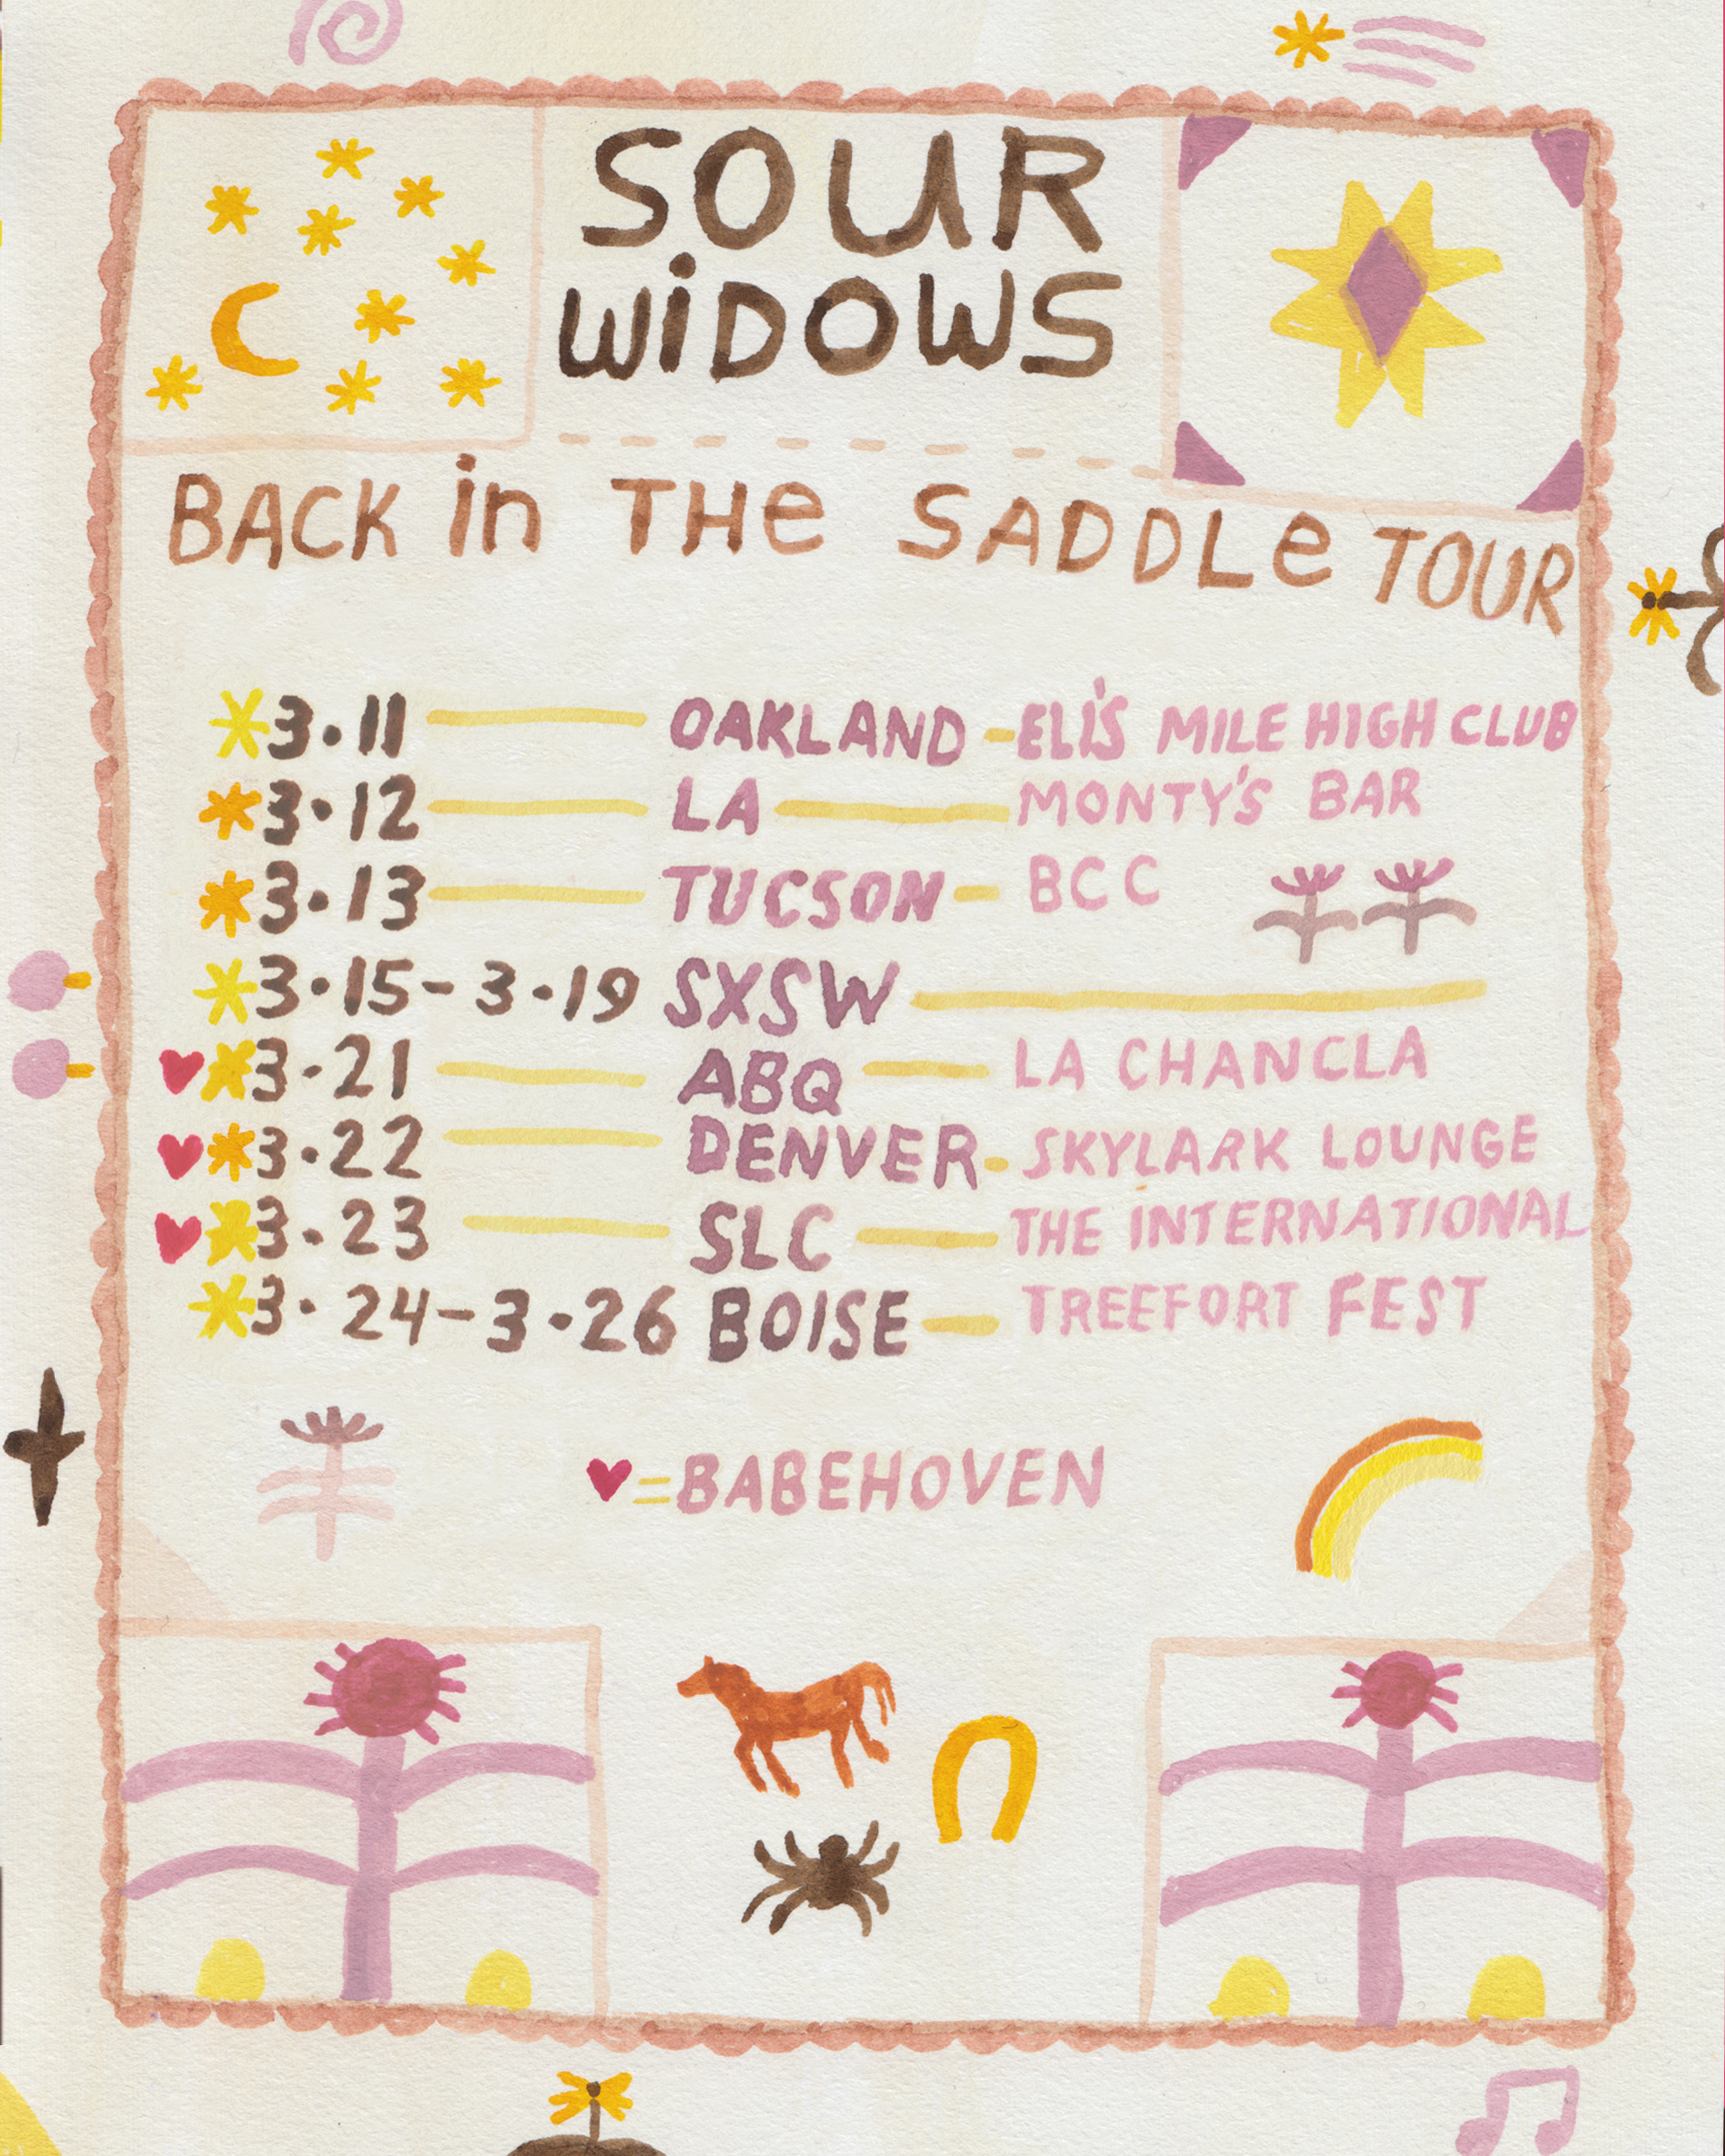 SOUR
WiDOWS
BACK in THe SADDLe TOUR
3·11 OAKLAND - ELI'S MILE HIGH CLUB
3·12 LA MONTY'S BAR
3·13 TUCSON - BCC
3·15 - 3·19 SXSW
3·21 ABQ - LA CHANCLA
3·22 DENVER - SKYLARK LOUNGE
3·23 SLC - THE INTERNATIONAL
3·24 - 3·26 BOISE - TREEFORT FEST
♥=BABEHOVEN